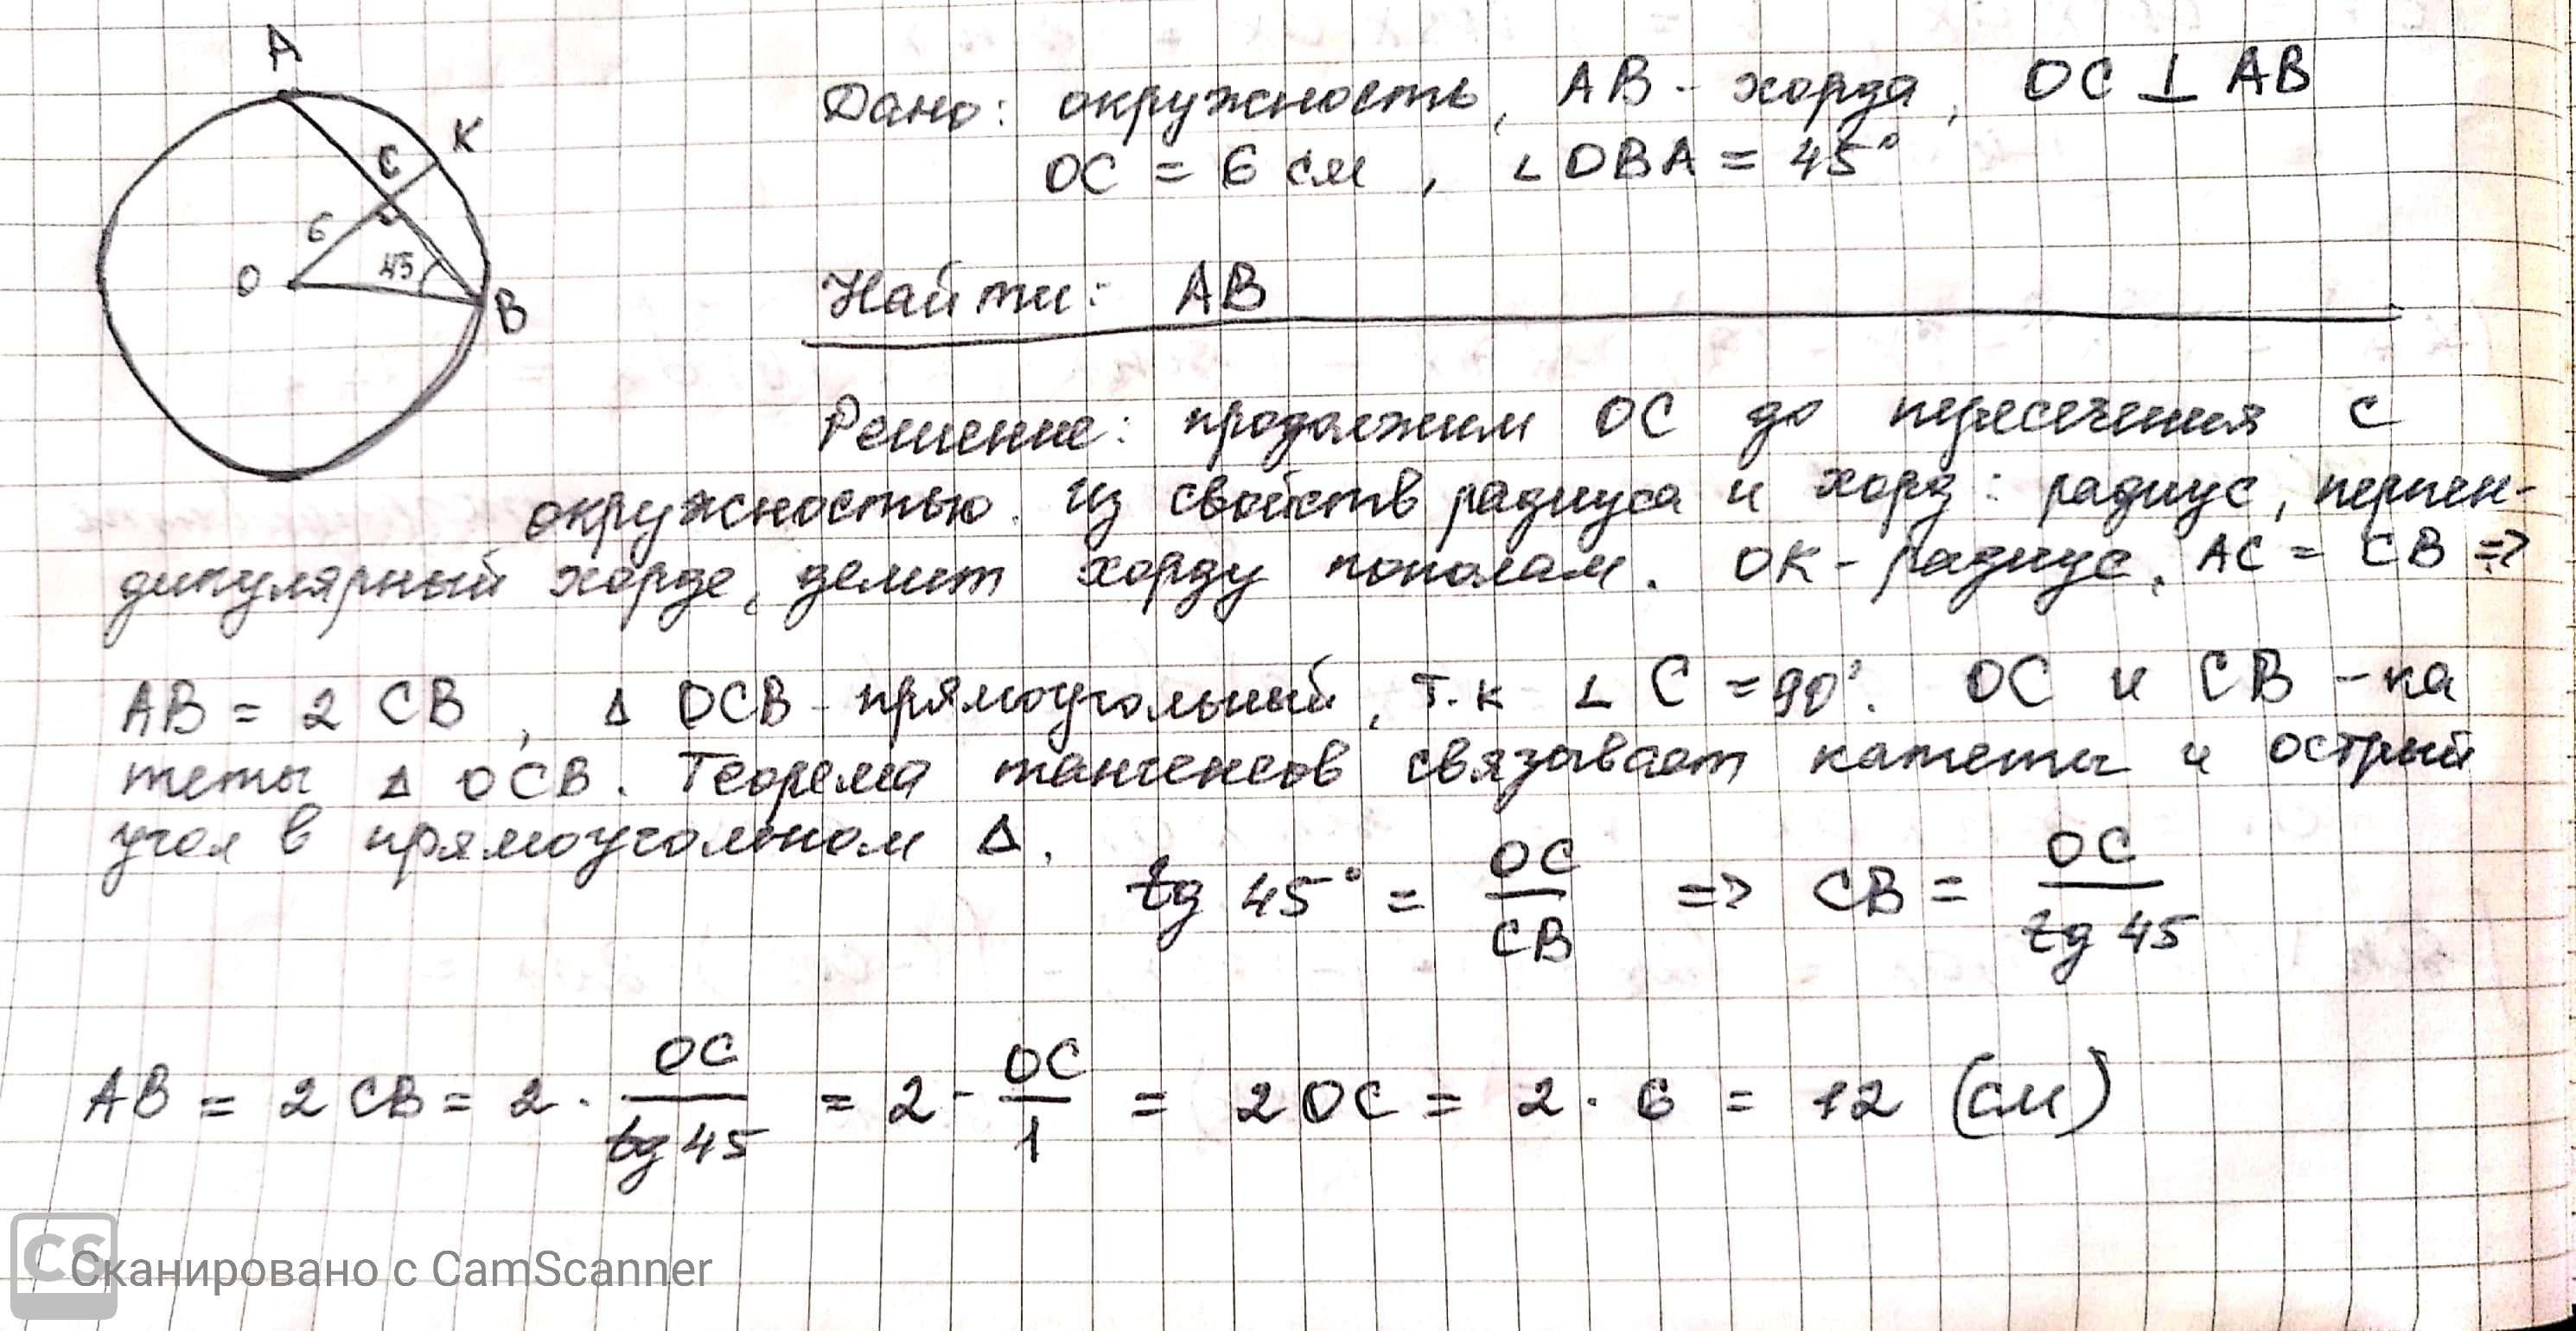 A
K
C
6
O
45
B
Дано: окружность, AB - хорда, OC ⊥ AB
OC = 6 см, ∠OBA = 45°
Найти: AB
Решение: продолжим OC до пересечения с
окружностью. Из свойств радиуса и хорд: радиус, перпен-
дикулярный хорде, делит хорду пополам. OK - радиус, AC = CB =>
AB = 2 CB, Δ OCB - прямоугольный, т.к ∠ C = 90°. OC и CB - ка
теты Δ OCB. Теорема тангенсов связывает катеты и острый
угол в прямоугольном Δ.
tg 45° = OC/CB => CB = OC/tg 45
AB = 2 CB = 2 · OC/tg 45 = 2 · OC/1 = 2 OC = 2 · 6 = 12 (см)
CS Сканировано с CamScanner